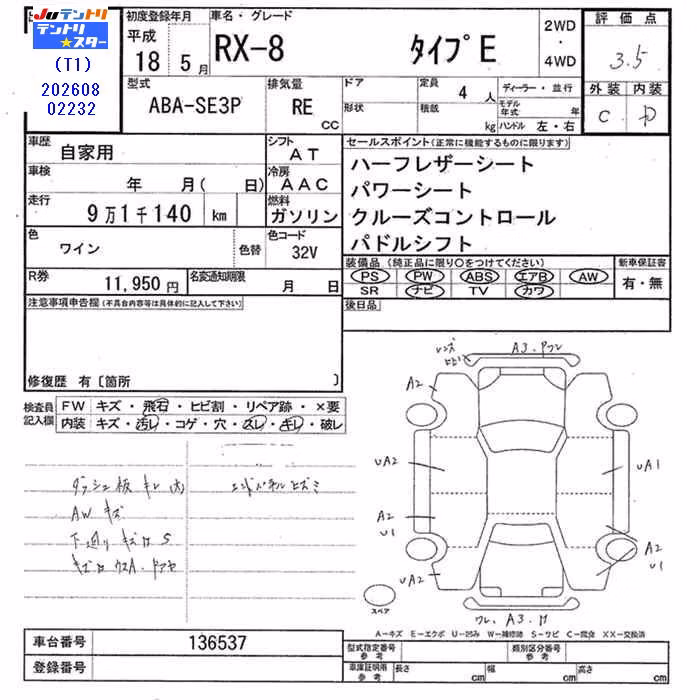 JUテントリ
テントリ
★スター
(T1)
202608
02232
初度登録年月
平成
18 5 月
車名・グレード
RX-8 タイプE
2WD
・
4WD
評価点
3.5
外装 内装
C D
型式
ABA-SE3P
排気量
RE
CC
ドア
形状
定員
4 人
積載
kg
ディーラー・並行
モデル年式 年
ハンドル 左・右
車歴
自家用
シフト
AT
車検
年 月( 日)
冷房
AAC
走行
9万1千140 km
燃料
ガソリン
色
ワイン
色替
色コード
32V
R券
11,950 円
名変通知期限
月 日
セールスポイント(正常に機能するものに限ります)
ハーフレザーシート
パワーシート
クルーズコントロール
パドルシフト
装備品(純正品に限り○をつけてください)
新車保証書
PS PW ABS エアB AW
SR ナビ TV カワ
有・無
後日品
注意事項申告欄(不具合内容等は具体的に記入して下さい)
修復歴 有〔箇所 〕
検査員
記入欄
FW キズ・飛石・ヒビ割・リペア跡・×要
内装 キズ・汚レ・コゲ・穴・スレ・キレ・破レ
ダッシュ板 キレ(大)
エンドパネルヒズミ
AW キズ
下廻り キズ S
レンズ
ヒビ
A3.
A2
UA2
UA1
A2
U1
A2
U1
UA2
ワレ、A3.
スペア
A-キズ E-エクボ U-凹み W-補修跡 S-サビ C-腐食 XX-交換済
車台番号
136537
登録番号
型式指定番号
参考
類別区分番号
参考
車庫証明用
参考
長さ cm
幅 cm
高さ cm